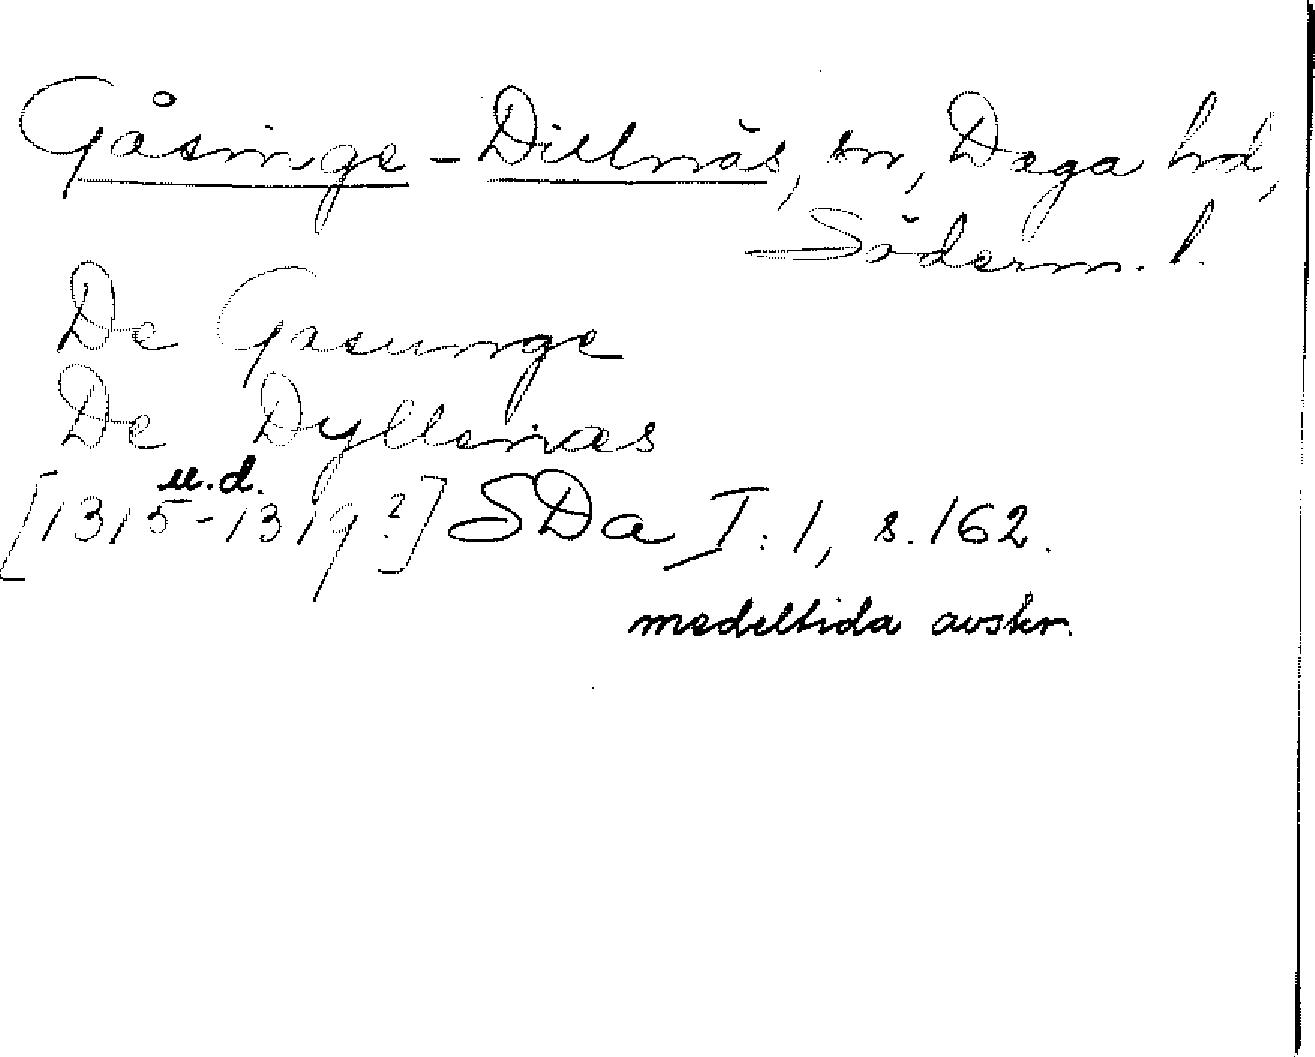 Gåsinge-Dillnäs, sn, Daga hd,
Söderm. l.
De Gasunge
De Dyllenæs
u.d.
[1315-1319?] SDa I:1, s. 162.
medeltida avskr.